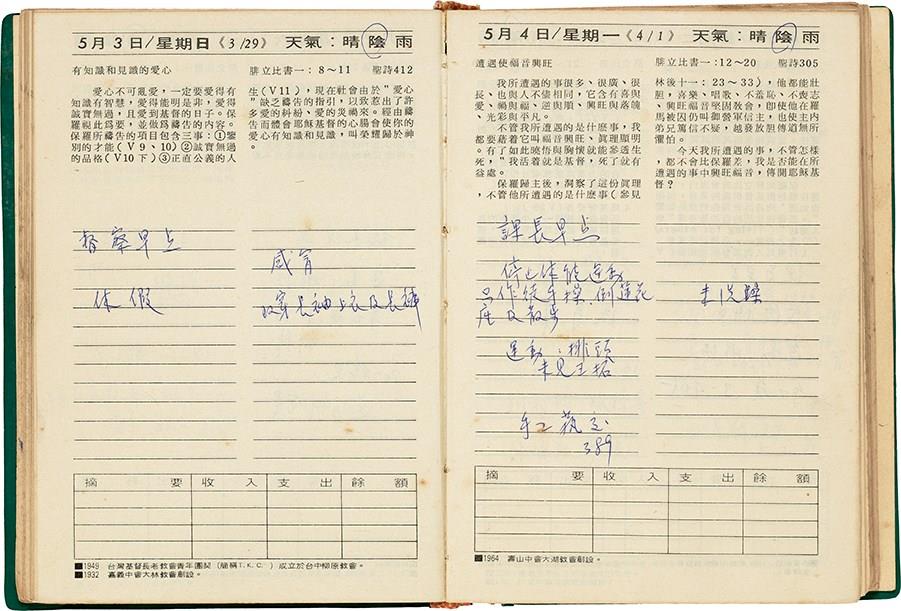 5月3日/星期日《3/29》 天氣：晴 陰 雨
有知識和見識的愛心 腓立比書一：8～11 聖詩412
愛心不可亂愛，一定要愛得有
知識有智慧，愛得能明是非，愛得
誠實無過，且愛到基督的日子。保
羅視此爲要，並做爲禱告的內容。
保羅所禱告的項目包含三事：①鑒
別的才能（V9、10）②誠實無過
的品格（V10下）③正直公義的人
生（V11），現在社會由於"愛心
"缺乏禱告的指引，以致惹出了許
多愛的糾紛、愛的災禍來。經由禱
告而體會耶穌基督的心腸會使你的
愛心有知識和見識，叫榮耀歸於神
。
督察早点
休假
感冒
改穿長袖上衣及長褲
摘 要 收 入 支 出 餘 額
■1949 台灣基督長老教會青年團契（簡稱T.K.C.）成立於台中柳原教會。
■1932 嘉義中會大林教會創設。
5月4日/星期一《4/1》 天氣：晴 陰 雨
遭遇使福音興旺 腓立比書一：12～20 聖詩305
我所遭遇的事很多、很廣、很
長、也與人不儘相同，它含有喜與
愛、禍與福、逆與順、興旺與落魄
、光彩與平凡。
不管我所遭遇的是什麽事，我
都要藉着它叫福音興旺、眞理顯明
。有了如此曉悟與胸懷就能參透生
死，"我活着就是基督，死了就有
益處。
保羅歸主後，洞察了這份眞理
，不管他所遭遇的是什麽事（參見
林後十一：23～33），他都能壯
胆，喜樂、唱歌、不羞恥、不喪志
、興旺福音堅固敎會，卽使他在羅
馬被囚仍叫御營軍信主，也使主內
弟兄篤信不疑，越發放胆傳道無所
懼怕。
今天我所遭遇的事，不管怎樣
，都不會比保羅差，我是否能在所
遭遇的事中興旺福音，傳開耶穌基
督？
課長早点
停止体能運動
只作徒手操、倒蓮花
座及散步
未洗澡
運動：排頭
未見王拓
手工藝
389
摘 要 收 入 支 出 餘 額
■1964 壽山中會大湖教會創設。